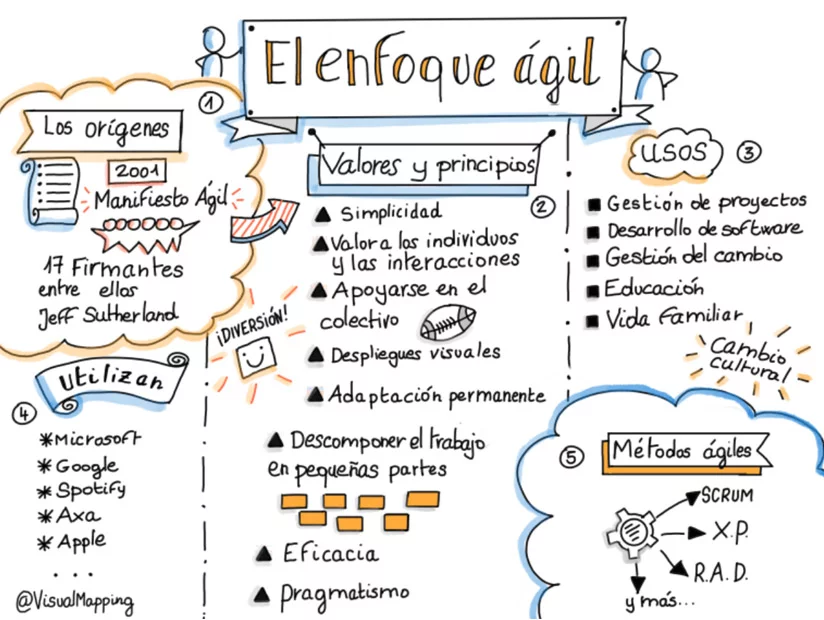 El enfoque ágil
1
Los orígenes
2001
Manifiesto Ágil
17 Firmantes
entre ellos
Jeff Sutherland
Valores y principios
2
Simplicidad
Valora los individuos
y las interacciones
Apoyarse en el
colectivo
¡DIVERSIÓN!
Despliegues visuales
Adaptación permanente
Descomponer el trabajo
en pequeñas partes
Eficacia
pragmatismo
USOS
3
Gestión de proyectos
Desarrollo de software
Gestión del cambio
Educación
Vida Familiar
Cambio
cultural
Utilizan
4
Microsoft
Google
Spotify
Axa
Apple
...
@VisualMapping
5
Métodos ágiles
SCRUM
X.P.
R.A.D.
y más...